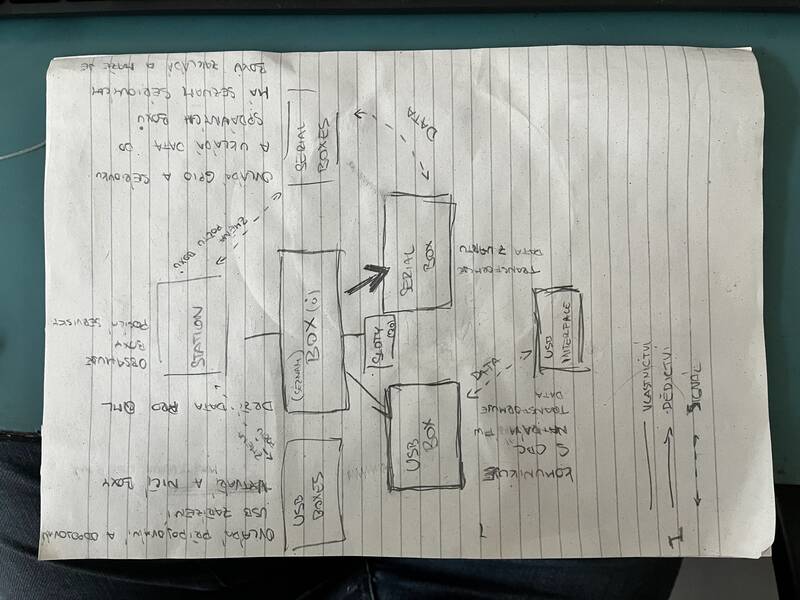 OVLÁDÁ PŘIPOJOVÁNÍ A ODPOJOVÁNÍ
USB ZAŘÍZENÍ
VYTVÁŘÍ A NIČÍ BOXY
DRŽÍ DATA PRO QML
OBSAHUJE
BOXY
POSÍLÁ SERVISKY
OVLÁDÁ GPIO A SÉRIOVKU
A UKLÁDÁ DATA DO
SPRÁVNÝCH BOXŮ
MÁ SEZNAM SERIOVÝCH
BOXŮ ZAKLÁDÁ A MAŽE JE
STATION
ZMĚNA
ZMĚNA POČTU BOXŮ
USB
BOXES
(SEZNAM)
BOX(ů)
SERIAL
BOXES
SLOTY
USB
BOX
SERIAL
BOX
DATA
KOMUNIKUJE
S ODC
NAHRÁVÁ FW
TRANSFORMUJE
DATA
DATA
TRANSFORMUJE
DATA Z UARTU
USB
INTERFACE
VLASTNICTVÍ
DĚDICTVÍ
SIGNÁL